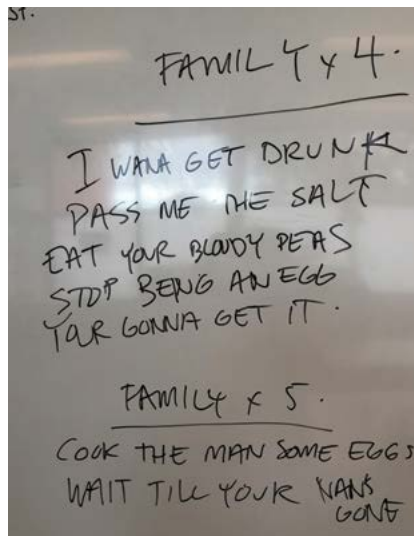 ST.
FAMILY x 4.
I WANA GET DRUNK
PASS ME THE SALT
EAT YOUR BLOODY PEAS
STOP BEING AN EGG
YOUR GONNA GET IT.
FAMILY x 5.
COOK THE MAN SOME EGGS
WAIT TILL YOUR NANS
GONE